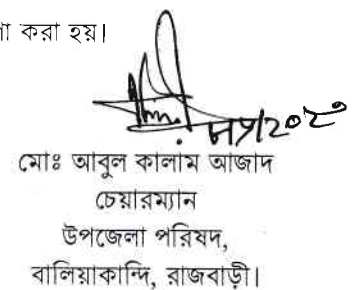 করা হয়।
মোঃ আবুল কালাম আজাদ
চেয়ারম্যান
উপজেলা পরিষদ,
বালিয়াকান্দি, রাজবাড়ী।